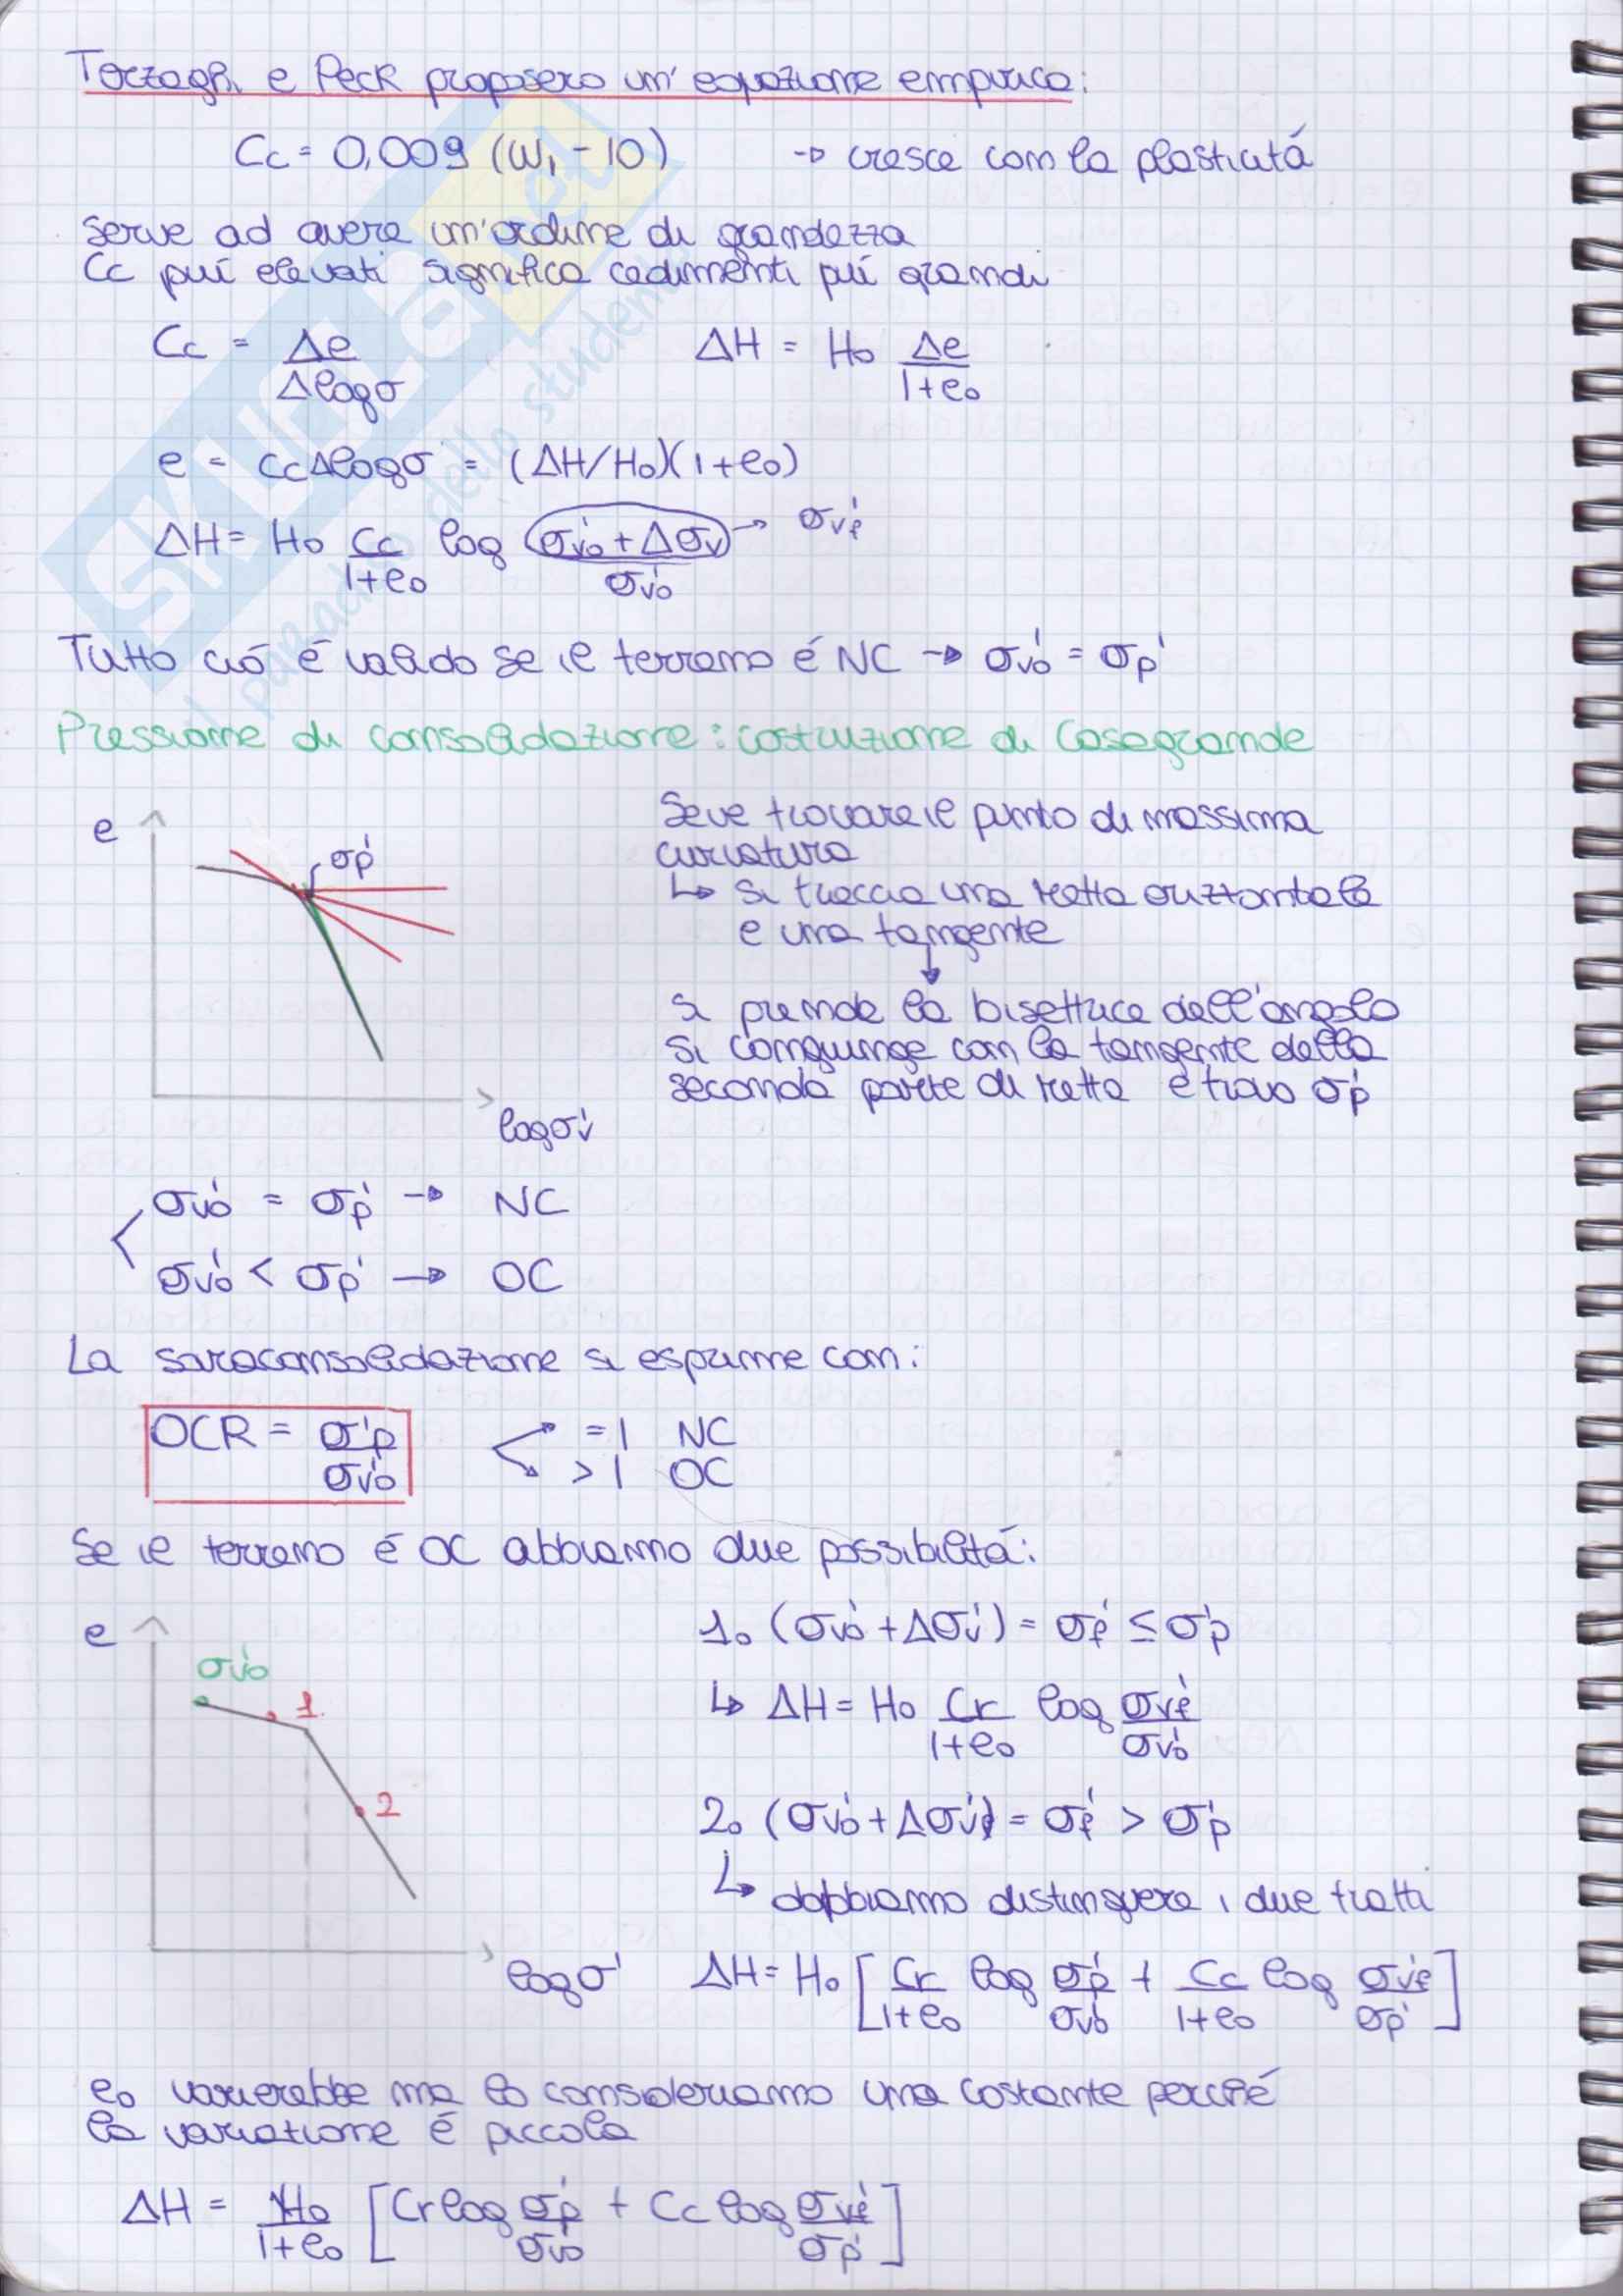 Terzaghi e Peck proposero un'equazione empirica:
Cc = 0,009 (WL - 10) → cresce con la plasticitá
serve ad avere un'ordine di grandezza
Cc piuí elevati significa cedimenti piuí grandi
Cc = Δe / Δlogσ    ΔH = H0 Δe / (1+e0)
e = CcΔlogσ = (ΔH/H0)(1+e0)
ΔH = H0 Cc/(1+e0) log (σ'v0 + Δσv)/σ'v0 → σ'vf
Tutto ció é valido se il terreno é NC → σ'v0 = σp'
Pressione di consolidazione: costruzione di Casagrande
e
σp'
logσ'v
Seve trovare il punto di massima
curvatura
↳ si traccia una retta orizzontale
e una tangente
↓
si prende la bisettrice dell'angolo
si congiunge con la tangente della
seconda parte di retta e trovo σ'p
σ'v0 = σ'p → NC
σ'v0 < σp' → OC
La sovraconsolidazione si esprime con:
OCR = σ'p / σ'v0    =1 NC
>1 OC
Se il terreno é OC abbiamo due possibilitá:
e
σ'v0
1
2
logσ'
1. (σ'v0 + Δσ'v) = σ'f ≤ σ'p
↳ ΔH = H0 Cr/(1+e0) log σ'vf/σ'v0
2. (σ'v0 + Δσ'v) = σ'f > σ'p
↳ dobbiamo distinguere i due tratti
ΔH = H0 [Cr/(1+e0) log σ'p/σ'v0 + Cc/(1+e0) log σ'vf/σp']
e0 varierebbe ma lo consideriamo una costante perché
la variazione é piccola
ΔH = H0/(1+e0) [Cr log σ'p/σ'v0 + Cc log σ'vf/σp']
SKUOLA.net
il paradiso dello studente